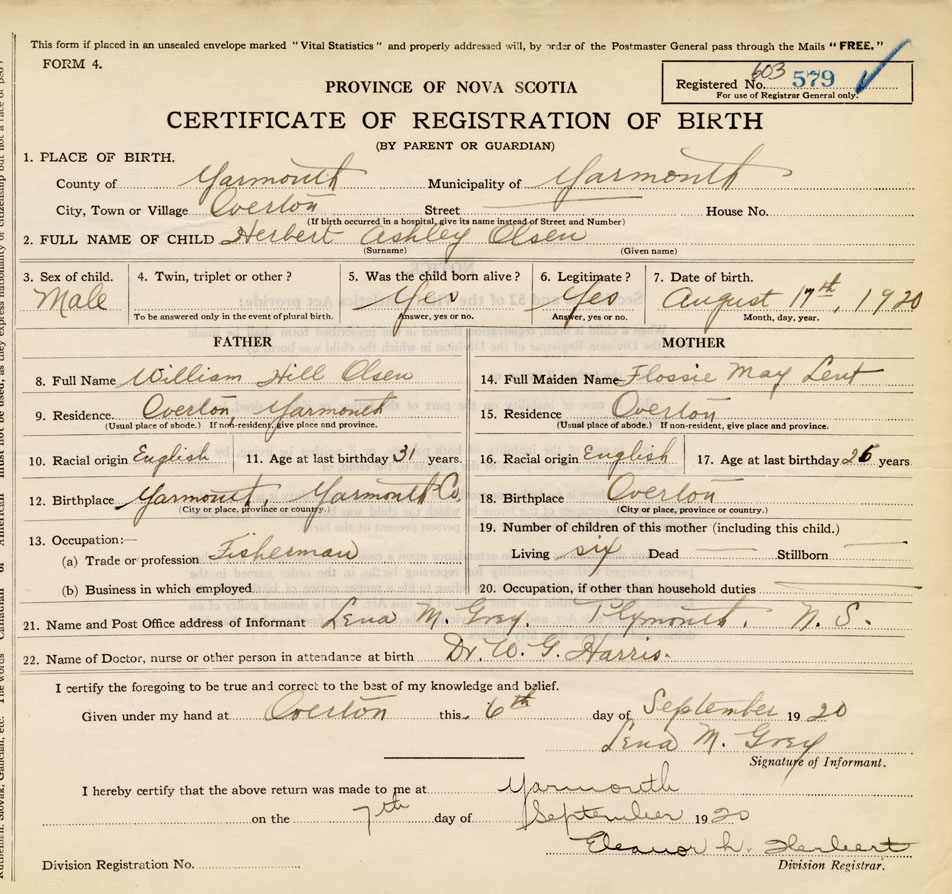 This form if placed in an unsealed envelope marked "Vital Statistics" and properly addressed will, by order of the Postmaster General pass through the Mails "FREE."
FORM 4.
603
Registered No. 579
For use of Registrar General only.
PROVINCE OF NOVA SCOTIA
CERTIFICATE OF REGISTRATION OF BIRTH
(BY PARENT OR GUARDIAN)
1. PLACE OF BIRTH.
County of Yarmouth Municipality of Yarmouth
City, Town or Village Overton Street House No.
(If birth occurred in a hospital, give its name instead of Street and Number)
2. FULL NAME OF CHILD Herbert Ashley Olsen
(Surname) (Given name)
3. Sex of child. 4. Twin, triplet or other? 5. Was the child born alive? 6. Legitimate? 7. Date of birth.
Male Yes Yes August 17th, 1920
To be answered only in the event of plural birth. Answer, yes or no. Answer, yes or no. Month, day, year.
FATHER MOTHER
8. Full Name William Hill Olsen 14. Full Maiden Name Flossie May Lent
9. Residence. Overton, Yarmouth 15. Residence Overton
(Usual place of abode.) If non-resident, give place and province. (Usual place of abode.) If non-resident, give place and province.
10. Racial origin English 11. Age at last birthday 31 years. 16. Racial origin English 17. Age at last birthday 26 years.
12. Birthplace Yarmouth Yarmouth Co. 18. Birthplace Overton
(City or place, province or country.) (City or place, province or country.)
13. Occupation:— 19. Number of children of this mother (including this child.)
(a) Trade or profession Fisherman Living six Dead — Stillborn —
(b) Business in which employed 20. Occupation, if other than household duties
21. Name and Post Office address of Informant Lena M. Grey. Plymouth, N. S.
22. Name of Doctor, nurse or other person in attendance at birth Dr. W. G. Harris.
I certify the foregoing to be true and correct to the best of my knowledge and belief.
Given under my hand at Overton this 6th day of September 1920
Lena M. Grey
Signature of Informant.
I hereby certify that the above return was made to me at Yarmouth
on the 7th day of September 1920
Eleanor L. Herbert
Division Registration No. Division Registrar.